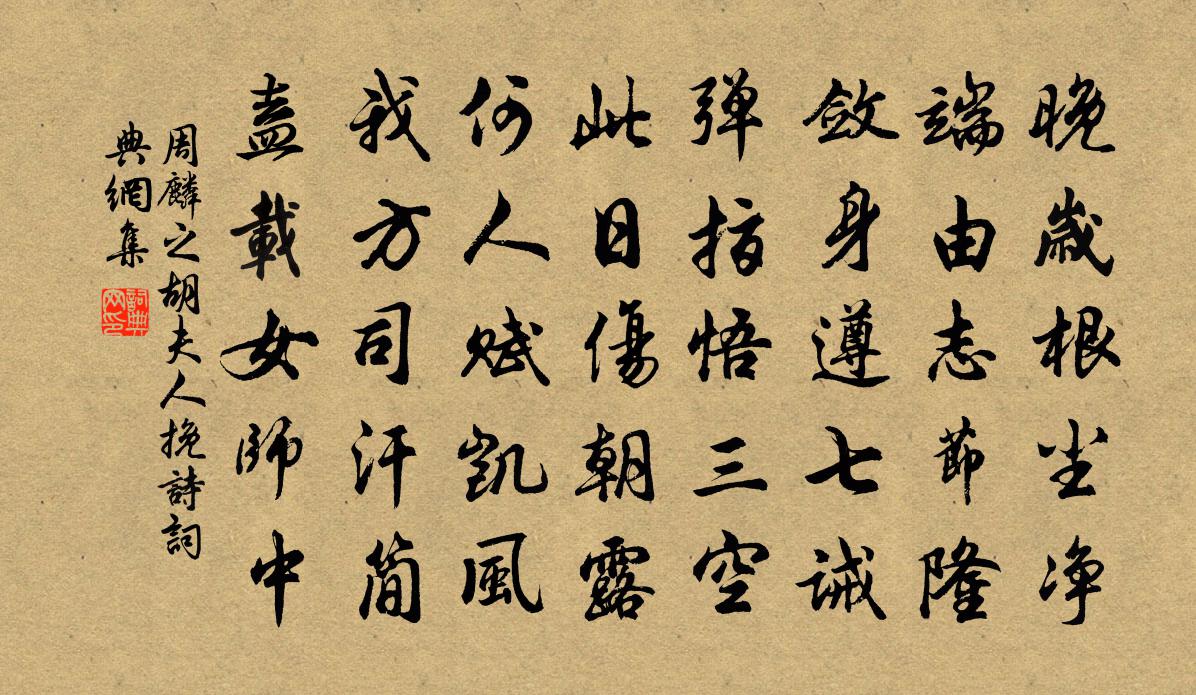 晚歲根尘净
端由志節隆
斂身遵七诫
弹指悟三空
此日傷朝露
何人赋凱風
我方司汗简
盍載女师中
周麟之胡夫人挽詩詞
典網集
詞典
网印